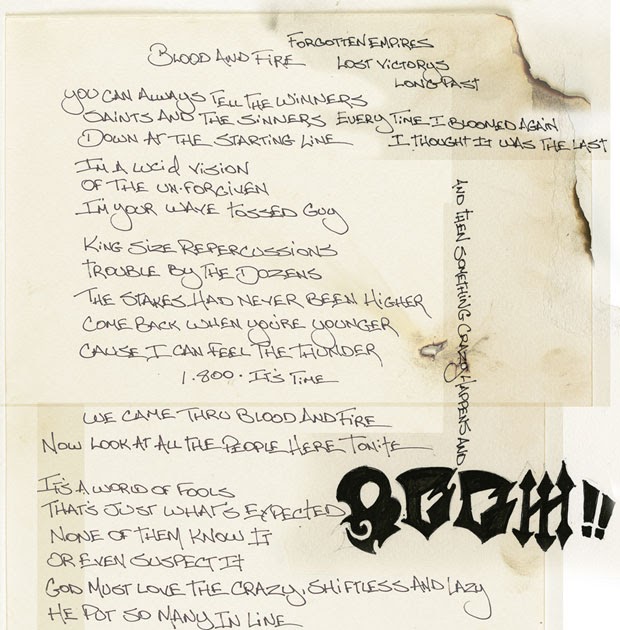 Blood And Fire
Forgotten Empires
Lost Victorys
Long Past
You can always tell the winners
Saints and the sinners
Every time I bloomed again
Down at the starting line
I thought it was the last
I'm a lucid vision
Of the un-forgiven
I'm your wave tossed guy
King size repercussions
Trouble by the dozens
The stakes had never been higher
Come back when you're younger
Cause I can feel the thunder
1.800. It's time
And then something crazy happens and
BOOM!!
We came thru blood and fire
Now look at all the people here tonite
It's a world of fools
That's just what's expected
None of them know it
Or even suspect it
God must love the crazy, shiftless and lazy
He put so many in line